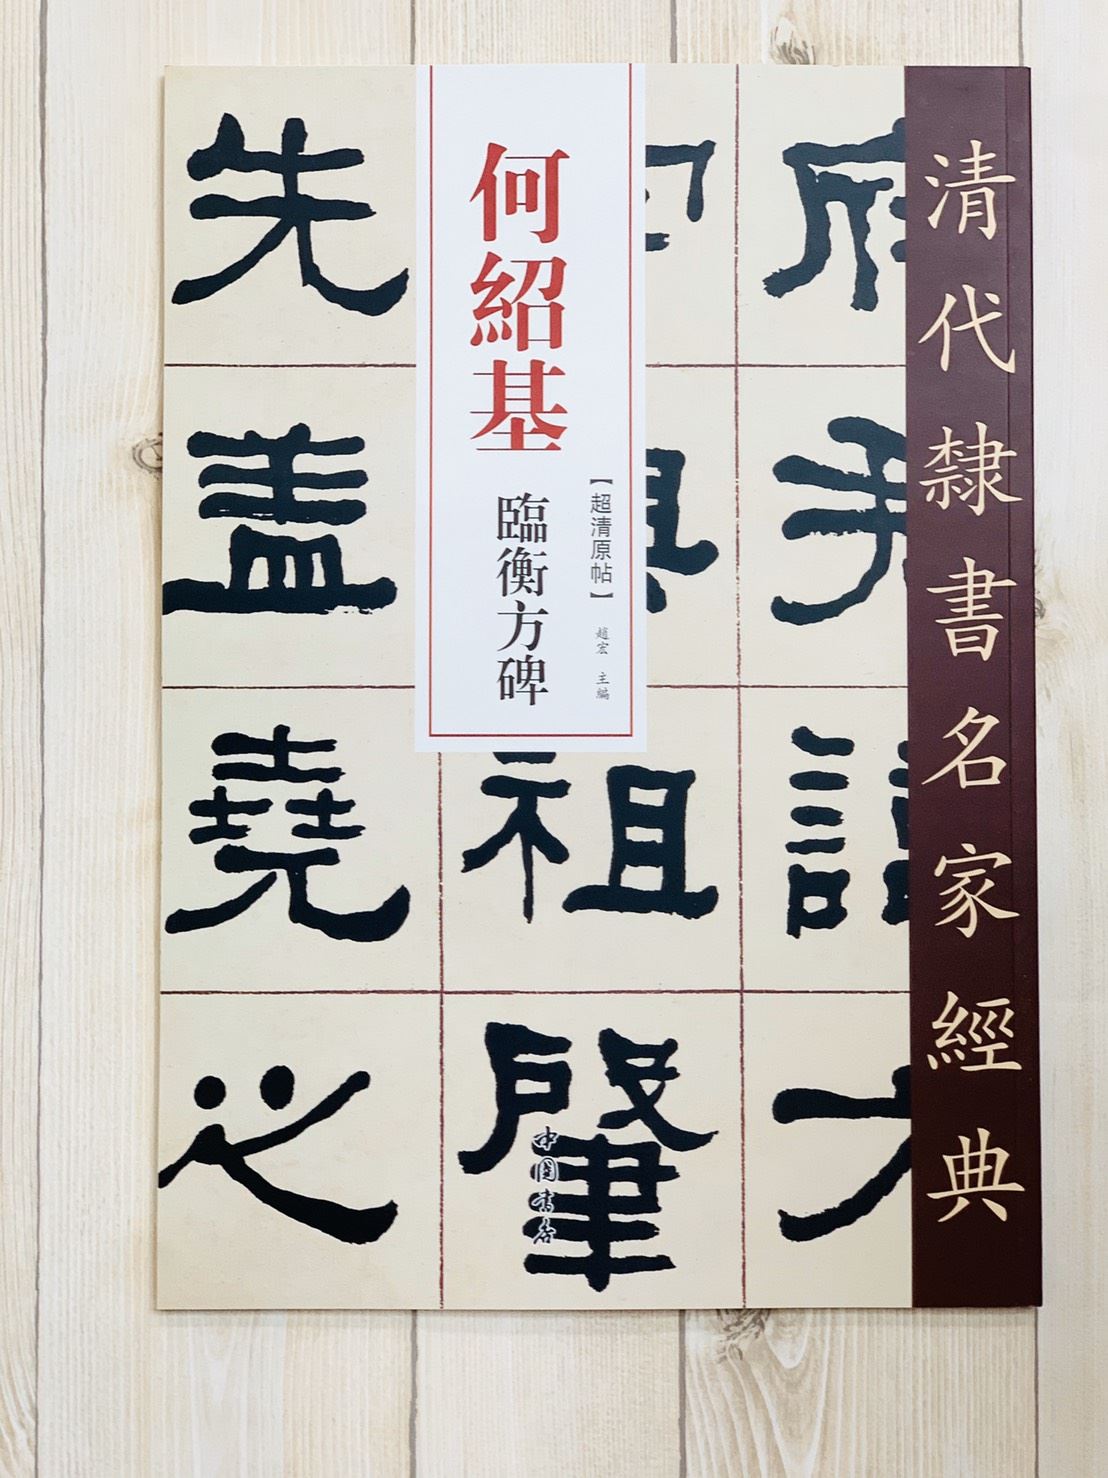 清代隸書名家經典
何紹基
臨衡方碑
【超清原帖】
趙宏 主編
府
君
諱
方
肇
祖
先
蓋
堯
之
中國書店